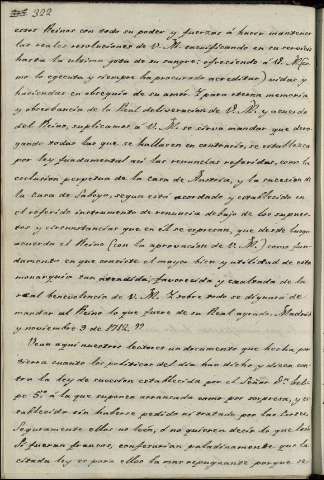 322
estos Reinos con todo su poder y fuerzas á hacer mantener
las reales resoluciones de V. M. sacrificando en su servicio
hasta la ultima gota de su sangre: ofreciendo á V. M. (como
lo egecuta y siempre ha procurado acreditar) vidas y
haciendas en obsequio de su amor. Y para eterna memoria
y observancia de la Real deliberacion de V. M. y acuerdo
del Reino, suplicamos á V. M. se sirva mandar que dero-
gando todas las que se hallaren en contrario, se establezca
por ley fundamental asi las renuncias referidas, como la
esclusion perpetua de la casa de Austria, y la sucesion de
la casa de Saboya, segun está acordado y establecido en
el referido instrumento de renuncia debajo de los supues-
tos y circunstancias que en él se espresan, que desde luego
acuerda el Reino (con la aprovacion de V. M.) como fun-
damento en que consiste el mayor bien y utilidad de esta
monarquia tan atendida, favorecida y exaltada de la
real benevolencia de V. M. Y sobre todo se dignará de
mandar al Reino lo que fuere de su Real agrado. Madrid
y noviembre 9 de 1712.
Vean aqui nuestros lectores un documento que hecha por
tierra cuanto los politicos del dia han dicho, y dicen con-
tra la ley de sucesion establecida por el Señor Dn. Feli-
pe 5º. á la que suponen arrancada como por sorpresa, y es-
tablecida sin haberse pedido ni tratado por las Cortes.
Seguramente ellos no leen, ó no quieren decir lo que leen.
Si fueran francos, confesarian paladinamente que la
citada ley es para ellos la mas repugnante porque se